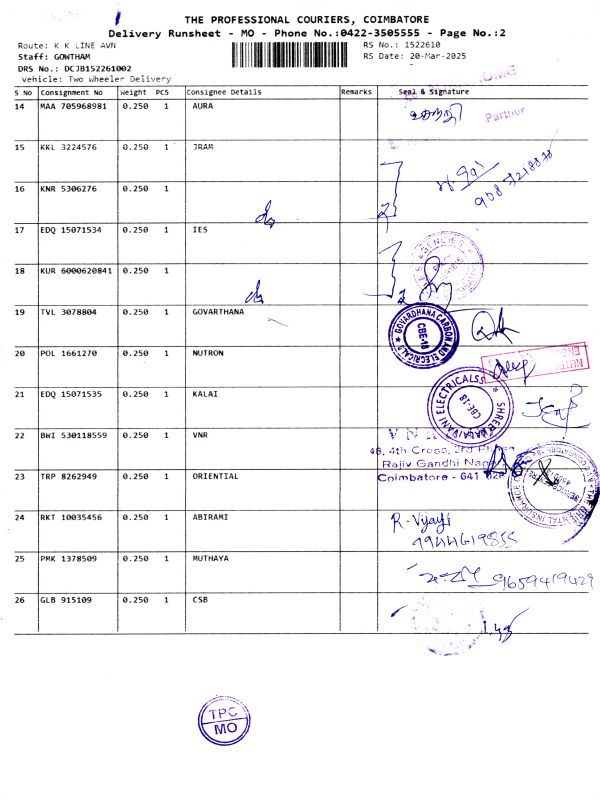 THE PROFESSIONAL COURIERS, COIMBATORE
Delivery Runsheet - MO - Phone No.:0422-3505555 - Page No.:2
Route: K K LINE AVN
RS No.: 1522610
Staff: GOWTHAM
RS Date: 20-Mar-2025
DRS No.: DCJB152261002
Vehicle: Two Wheeler Delivery
S No Consignment No Weight PCS Consignee Details Remarks Seal & Signature
14 MAA 705968981 0.250 1 AURA
Partner
15 KKL 3224576 0.250 1 JRAM
16 KNR 5306276 0.250 1
17 EDQ 15071534 0.250 1 IES
18 KUR 6000620841 0.250 1
19 TVL 3078804 0.250 1 GOVARTHANA
GOVARDHANA CARBON AND ELECRICALS
CBE-18
20 POL 1661270 0.250 1 NUTRON
21 EDQ 15071535 0.250 1 KALAI
SHREE KALAIVANI ELECTRICALSS
CBE-18
22 BWI 530118559 0.250 1 VNR
46, 4th Cross, 3rd
Rajiv Gandhi
Coimbatore - 641
23 TRP 8262949 0.250 1 ORIENTIAL
ORIENTAL INSURANCE
24 RKT 10035456 0.250 1 ABIRAMI
R-Vijay
9944619855
25 PMK 1378509 0.250 1 MUTHAYA
9659419429
26 GLB 915109 0.250 1 CSB
TPC
MO